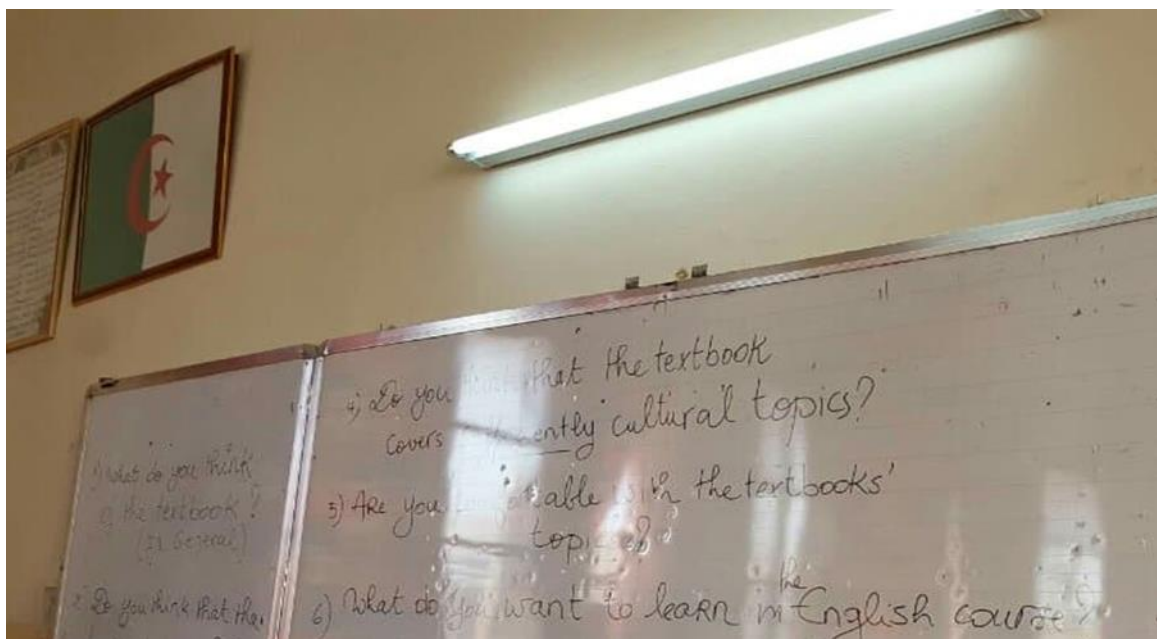 1) What do you think
of the textbook?
(In General)
2) Do you think that the
4) Do you think that the textbook
covers sufficiently cultural topics?
5) ARe you comfortable with the textbooks'
topics?
6) What do you want to leaRn in the English course?